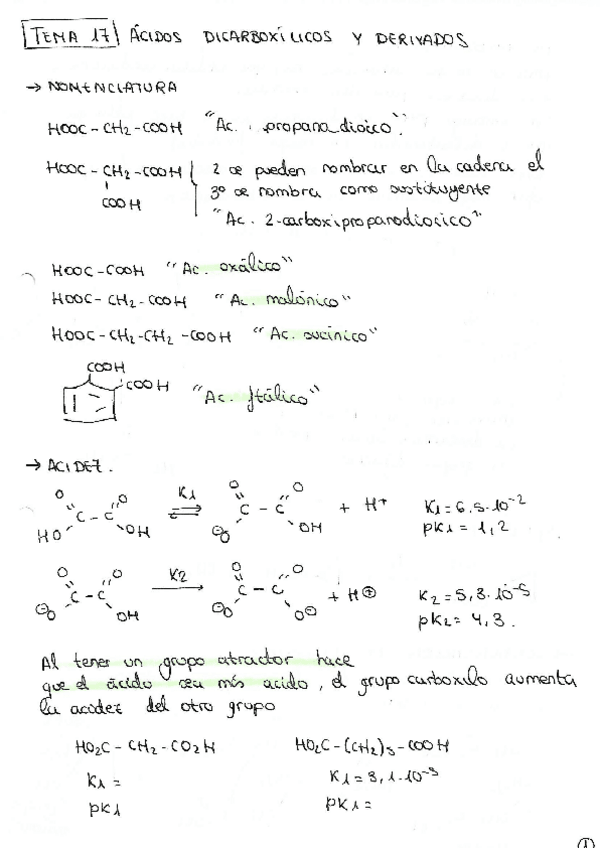 TEMA 17 ÁCIDOS DICARBOXÍLICOS Y DERIVADOS
→ NOMENCLATURA
HOOC-CH2-COOH "Ac. propanodioico".
HOOC-CH2-COOH 2 se pueden nombrar en la cadena el
COOH 3º se nombra como sustituyente
"Ac. 2-carboxipropanodiocico"
HOOC-COOH "Ac. oxálico"
HOOC-CH2-COOH "Ac. malónico"
HOOC-CH2-CH2-COOH "Ac. succínico"
COOH
COOH "Ac. ftálico"
→ ACIDEZ.
O O K1 O O
C-C ⇌ C-C + H+ K1=6,5·10-2
HO OH O⊖ OH pK1=1,2
O O K2 O O
C-C → C-C + H⊕ K2=5,3·10-5
⊖O OH ⊖O O⊖ pK2=4,3.
Al tener un grupo atractor hace
que el ácido sea más acido, el grupo carboxilo aumenta
la acidez del otro grupo
HO2C-CH2-CO2H HO2C-(CH2)3-COOH
K1= K1=3,1·10-5
pK1 pK1=
1